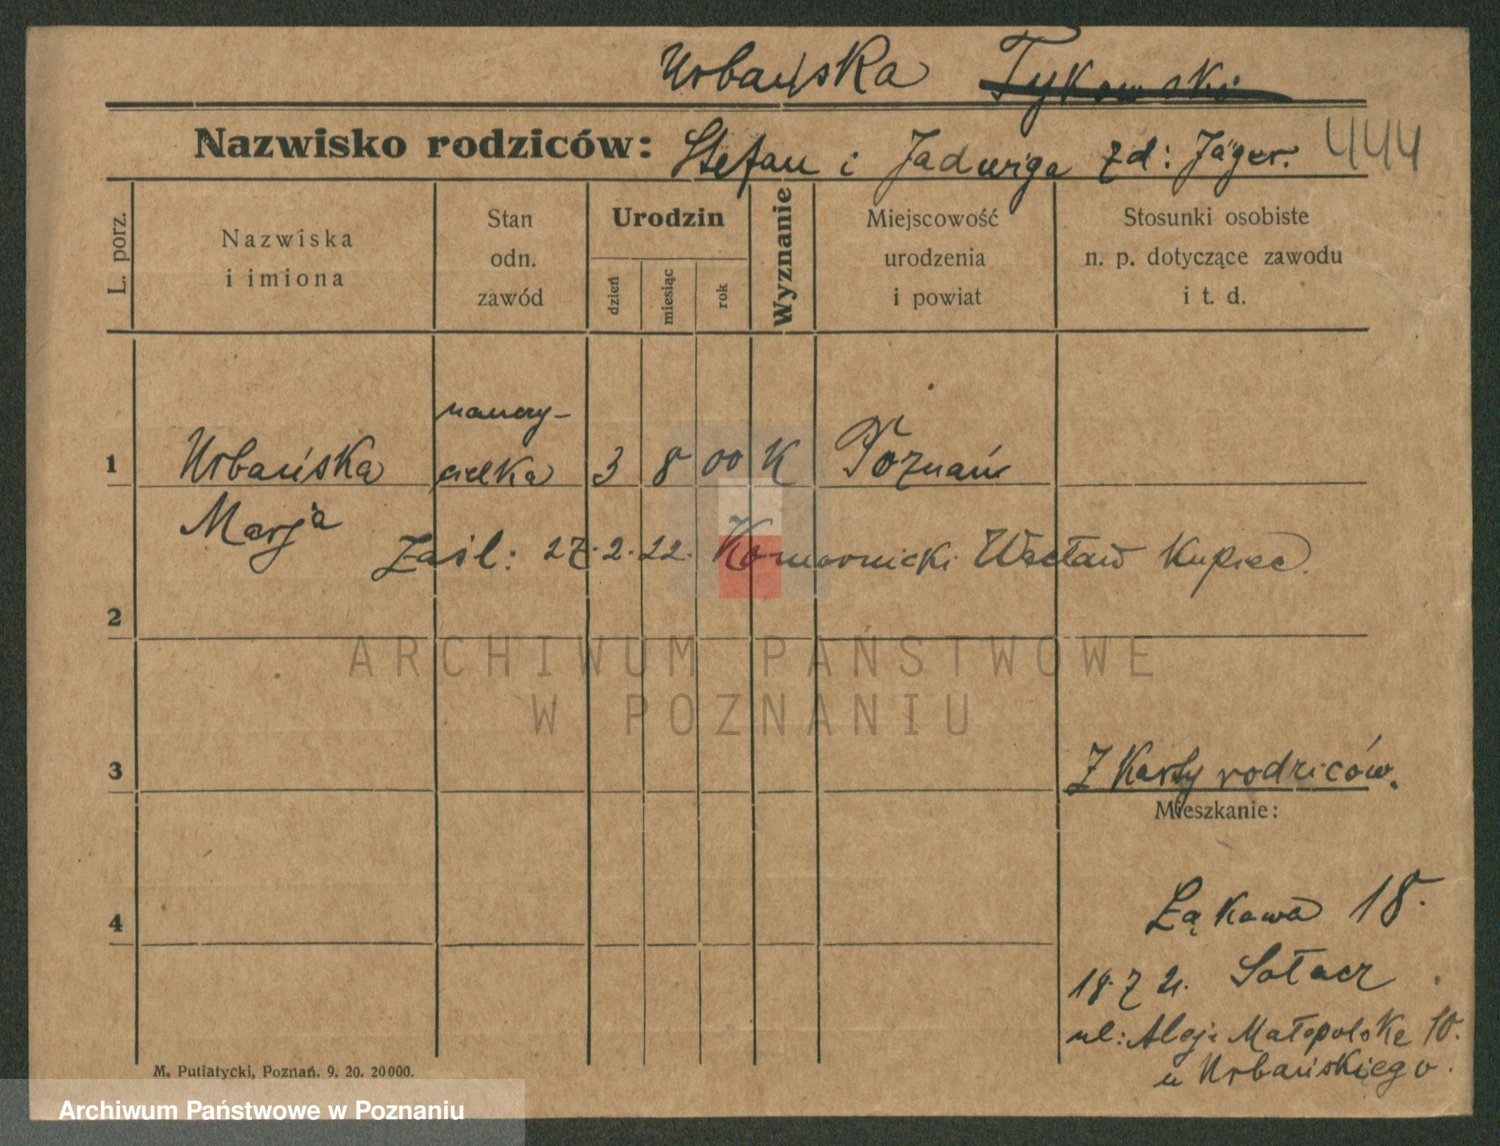 Urbańska Tykowski
Nazwisko rodziców: Stefan i Jadwiga zd: Jäger. 444
L. porz.
Nazwiska
i imiona
Stan
odn.
zawód
Urodzin
dzień
miesiąc
rok
Wyznanie
Miejscowość
urodzenia
i powiat
Stosunki osobiste
n. p. dotyczące zawodu
i t. d.
nauczy-
1 Urbańska cielka 3 8 00 K Poznań
Marja
Zaśl: 27.2.22. Komornicki Wacław Kupiec.
2
ARCHIWUM PAŃSTWOWE
W POZNANIU
3 Z Karty rodziców.
Mieszkanie:
4 Łąkowa 18.
18.7 21. Sołacz
ul: Aleje Małopolskie 10.
u Urbańskiego.
M. Putiatycki, Poznań. 9. 20. 20000.
Archiwum Państwowe w Poznaniu